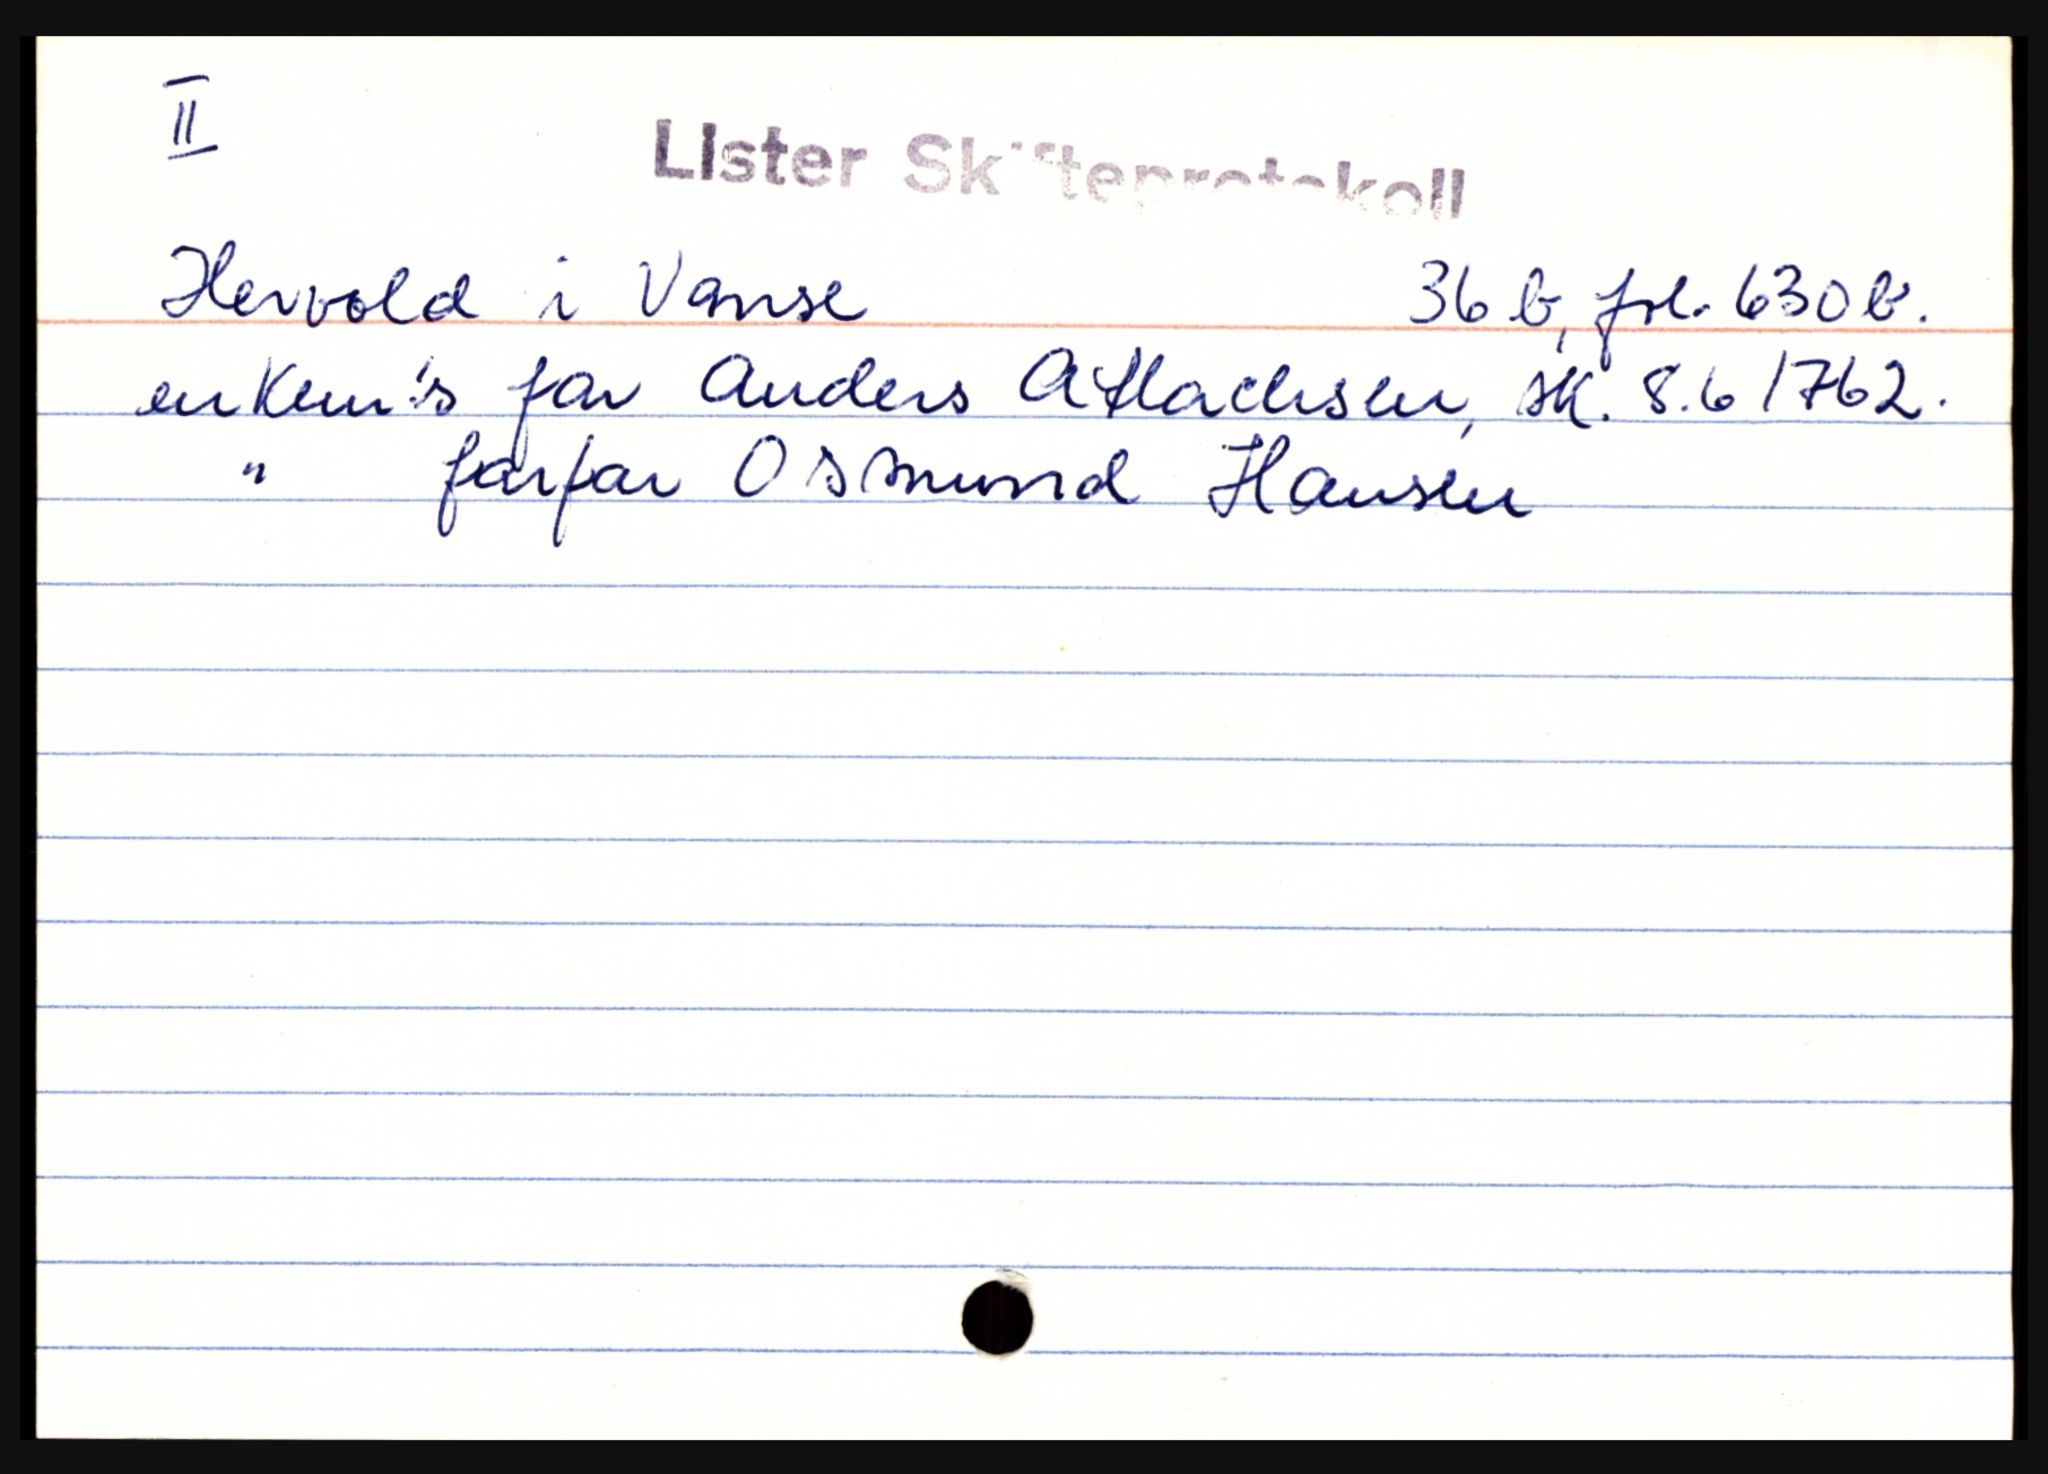 II
Lister Skifteprotokoll
Hervold i Vanse 36 b, fol. 630 b.
enkem's far Anders Atlachsen, sk. 8.6 1762.
" farfar Osmund Hansen